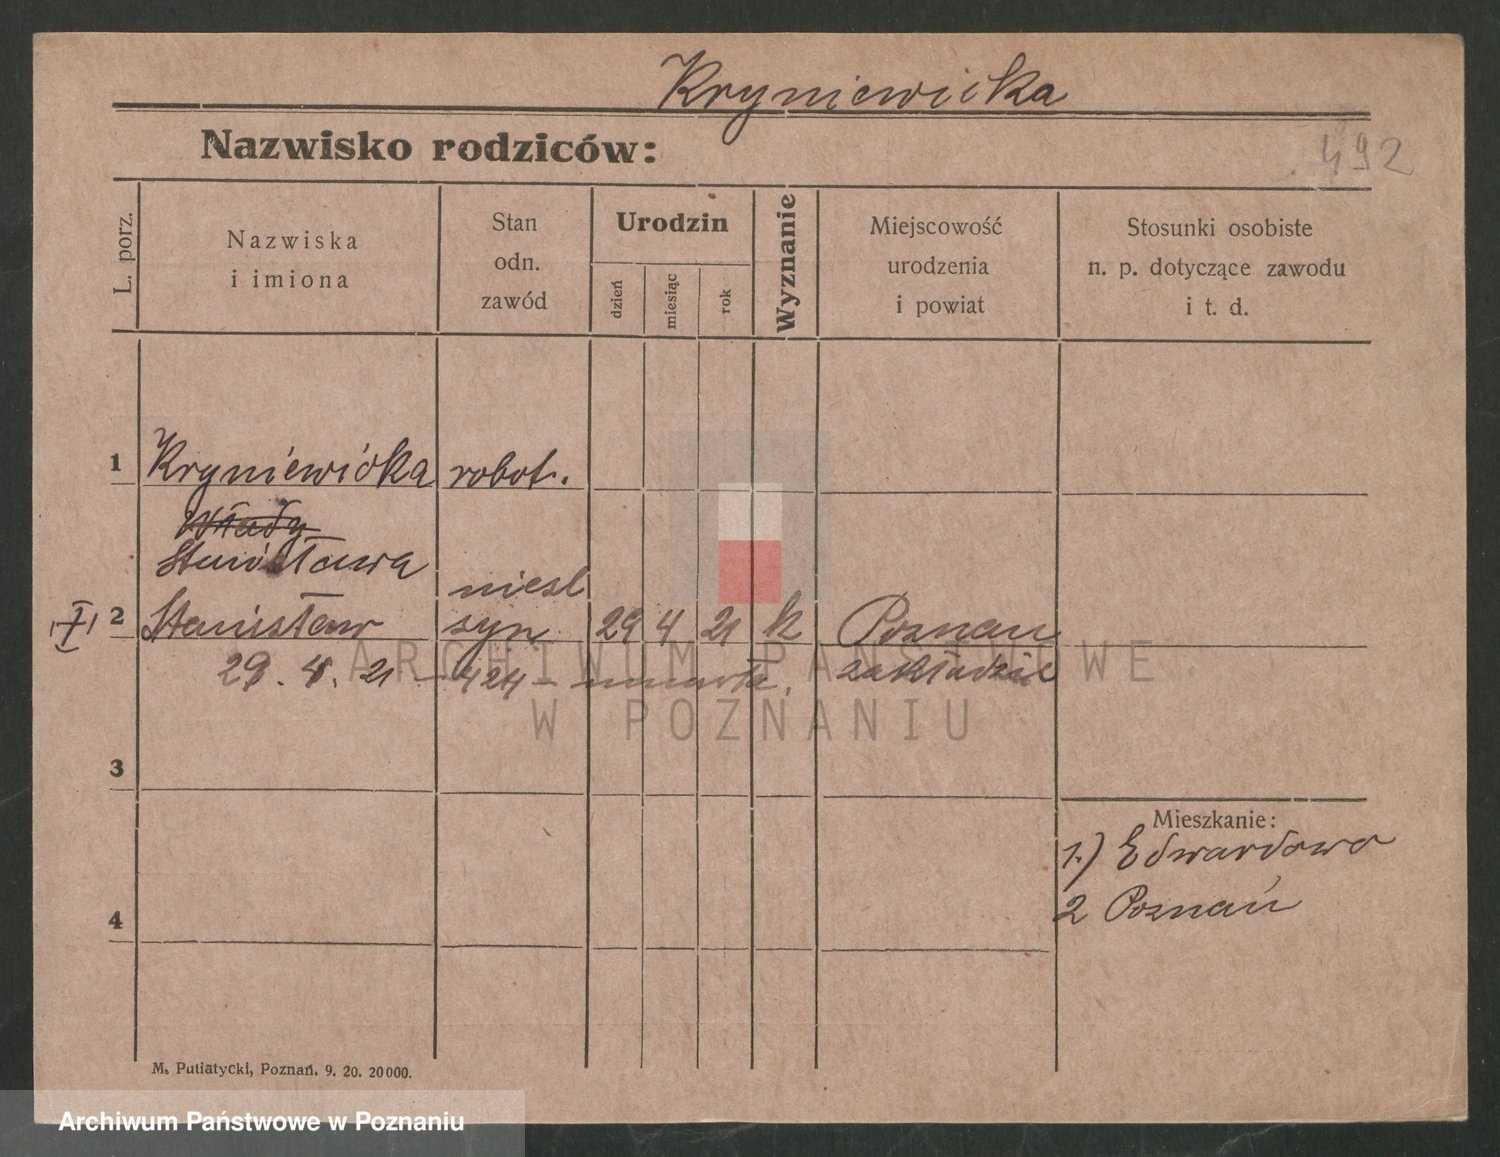 Kryniewicka
Nazwisko rodziców:
492
L. porz.
Nazwiska
i imiona
Stan
odn.
zawód
Urodzin
dzień
miesiąc
rok
Wyznanie
Miejscowość
urodzenia
i powiat
Stosunki osobiste
n. p. dotyczące zawodu
i t. d.
1 Kryniewicka robot.
Włady
Stanisława
niesl
2 Stanisław syn 29 4 21 k Poznań
29. 4. 21 - 424 - umarła. zakładzie
ARCHIWUM PAŃSTWOWE
W POZNANIU
3
Mieszkanie:
1.) Edwardowo
2 Poznań
4
M. Putiatycki, Poznań. 9. 20. 20000.
Archiwum Państwowe w Poznaniu